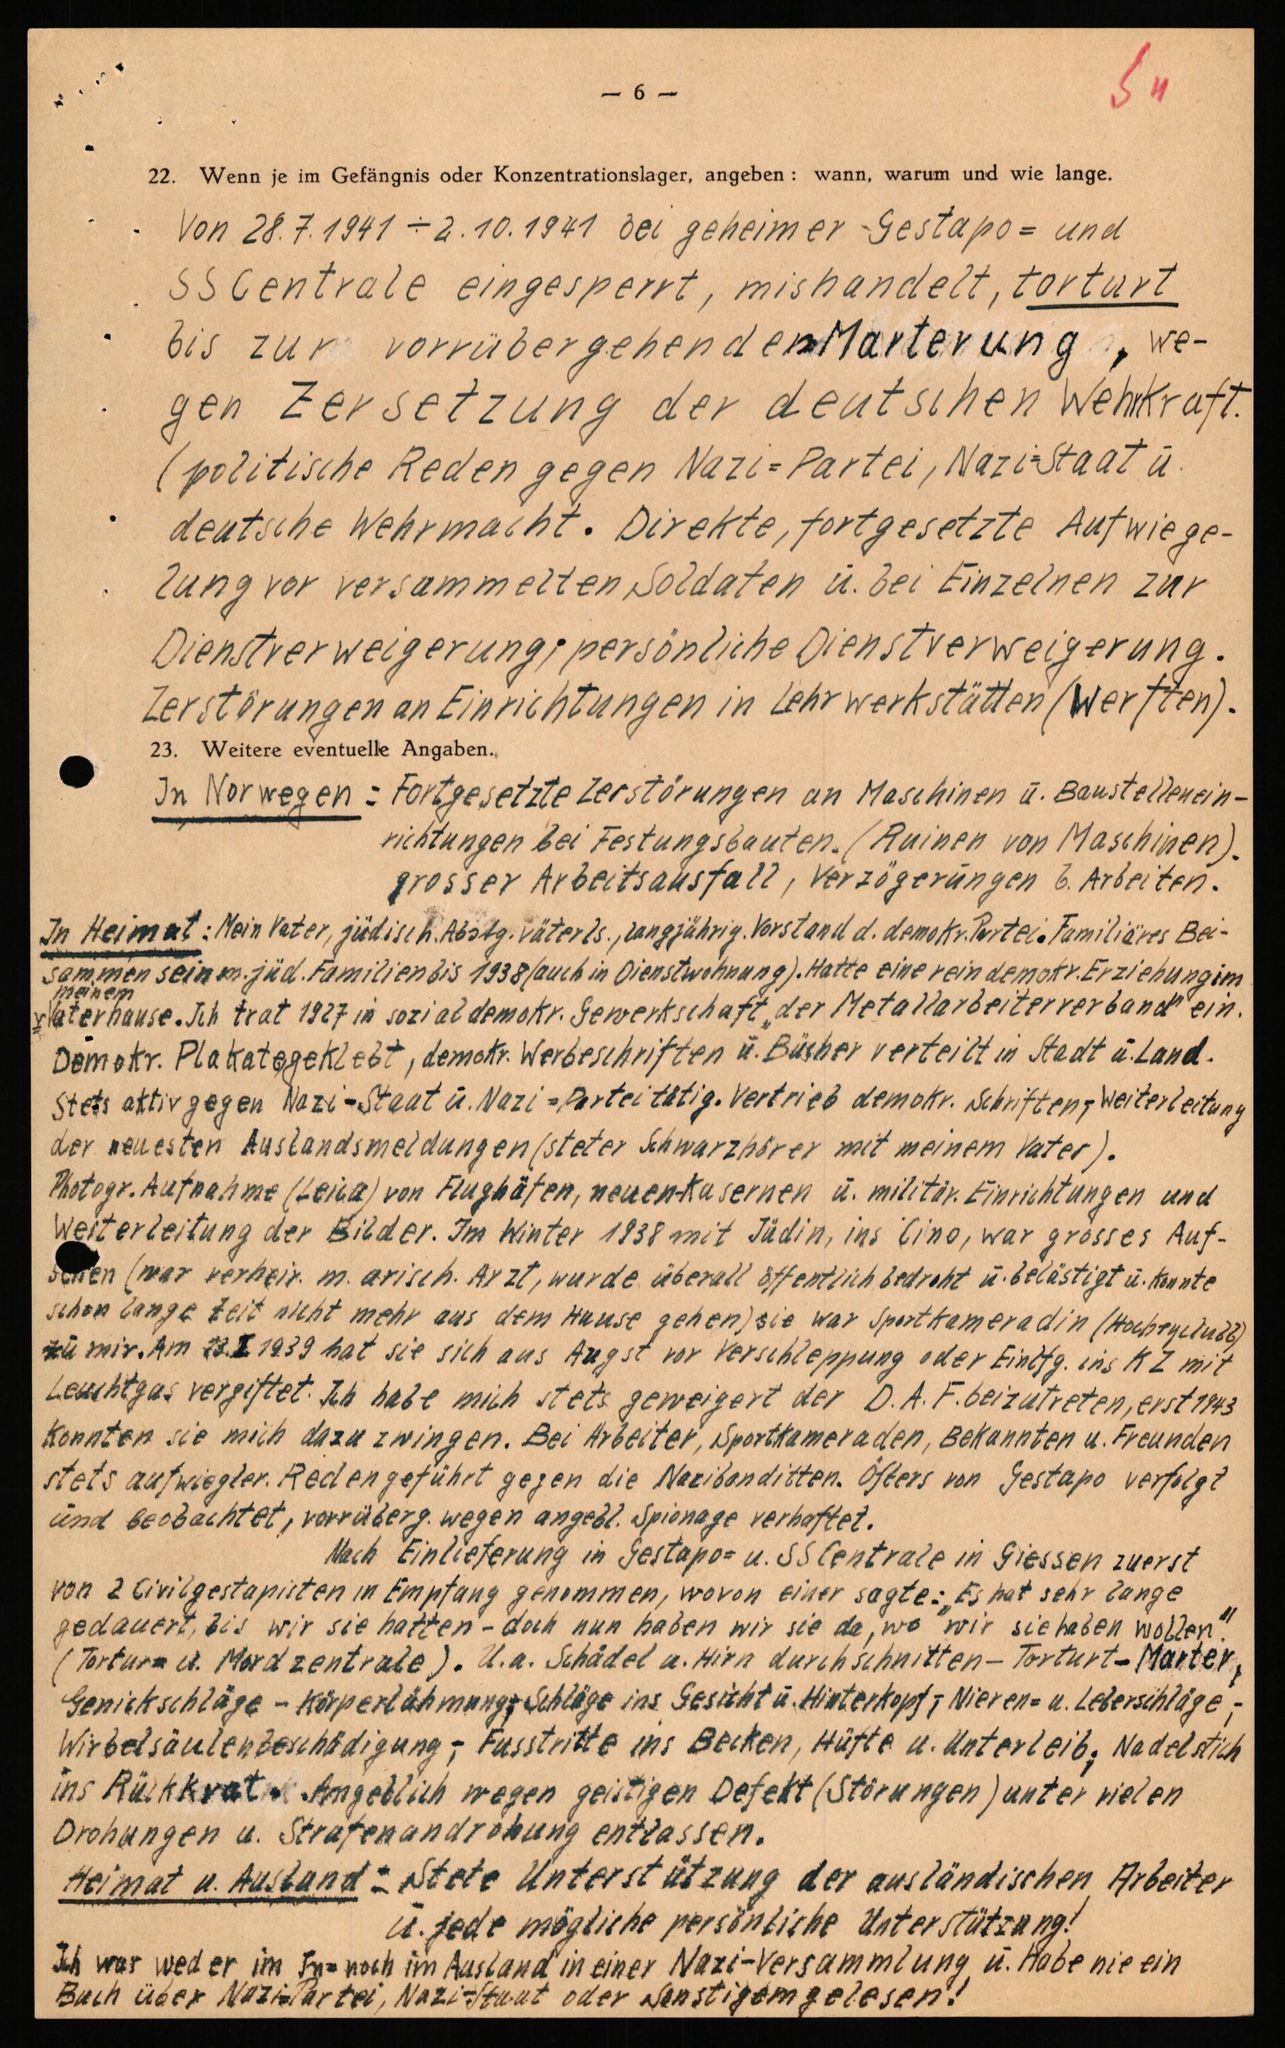 — 6 —
22. Wenn je im Gefängnis oder Konzentrationslager, angeben: wann, warum und wie lange.
Von 28.7.1941 ÷ 2.10.1941 bei geheimer Gestapo= und
SS Centrale eingesperrt, mishandelt, torturt
bis zur vorrübergehenden Marterung, we-
gen Zersetzung der deutschen Wehrkraft.
(politische Reden gegen Nazi=Partei, Nazi=Staat ū.
deutsche Wehrmacht. Direkte, fortgesetzte Aufwiege-
lung vor versammelten Soldaten ū. bei Einzelnen zur
Dienstverweigerung; persönliche Dienstverweigerung.
Zerstörungen an Einrichtungen in Lehrwerkstätten (Werften).
23. Weitere eventuelle Angaben.
In Norwegen: Fortgesetzte Zerstörungen an Maschinen ū. Baustellenein-
richtungen bei Festungsbauten. (Ruinen von Maschinen).
grosser Arbeitsausfall, Verzögerūngen b. Arbeiten.
In Heimat: Mein Vater, jüdisch. Abstg. väterls., langjährig. Vorstand d. demokr. Partei. Familiäres Bei-
sammensein m. jüd. Familien bis 1938 (auch in Dienstwohnung). Hatte eine rein demokr. Erziehung im
meinem
Vaterhause. Ich trat 1927 in sozialdemokr. Gewerkschaft „der Metallarbeiterverband" ein.
Demokr. Plakate geklebt, demokr. Werbeschriften ū. Bücher verteilt in Stadt ū. Land.
Stets aktiv gegen Nazi-Staat ū. Nazi=Partei tätig. Vertrieb demokr. Schriften, Weiterleitung
der neuesten Auslandsmeldungen (steter Schwarzhörer mit meinem Vater).
Photogr. Aufnahme (Leica) von Flughäfen, neuen Kasernen ū. militär. Einrichtungen und
Weiterleitung der Bilder. Im Winter 1938 mit Jüdin, ins Cino, war grosses Auf-
sehen (war verheir. m. arisch. Arzt, wurde überall öffentlich bedroht ū. belästigt ū. konnte
schon lange Zeit nicht mehr aus dem Hause gehen) sie war Sportkameradin (Hockeyclubb)
zū mir. Am 1939 hat sie sich aus Angst vor Verschleppung oder Einlfg. ins KZ mit
Leuchtgas vergiftet. Ich habe mich stets geweigert der D.A.F. beizutreten, erst 1943
konnten sie mich dazu zwingen. Bei Arbeiter, Sportkameraden, Bekannten u. Freunden
stets aufwiegler. Reden geführt gegen die Nazibanditten. Öfters von Gestapo verfolgt
und beobachtet, vorrüberg. wegen angebl. Spionage verhaftet.
Nach Einlieferung in Gestapo= u. SS Centrale in Giessen zuerst
von 2 Civilgestapisten in Empfang genommen, wovon einer sagte: „Es hat sehr lange
gedauert, bis wir sie hatten - doch nun haben wir sie da, wo wir sie haben wollen."
(Tortur= u. Mordzentrale). U.a. Schädel u. Hirn durchschnitten - Torturt - Marter,
Genickschläge - Körperlähmung; Schläge ins Gesicht ū. Hinterkopf; Nieren= u. Leberschläge;
Wirbelsäulenbeschädigung; Fusstritte ins Becken, Hüfte u. Unterleib; Nadelstich
ins Rückkrat. Angeblich wegen geistigen Defekt (Störungen) unter vielen
Drohungen u. Strafenandrohung entlassen.
Heimat u. Ausland: Stete Unterstützung der ausländischen Arbeiter
ū. jede mögliche persönliche Unterstützung!
Ich war weder im In= noch im Ausland in einer Nazi-Versammlung ū. Habe nie ein
Buch über Nazi=Partei, Nazi=Staat oder Sonstigem gelesen!